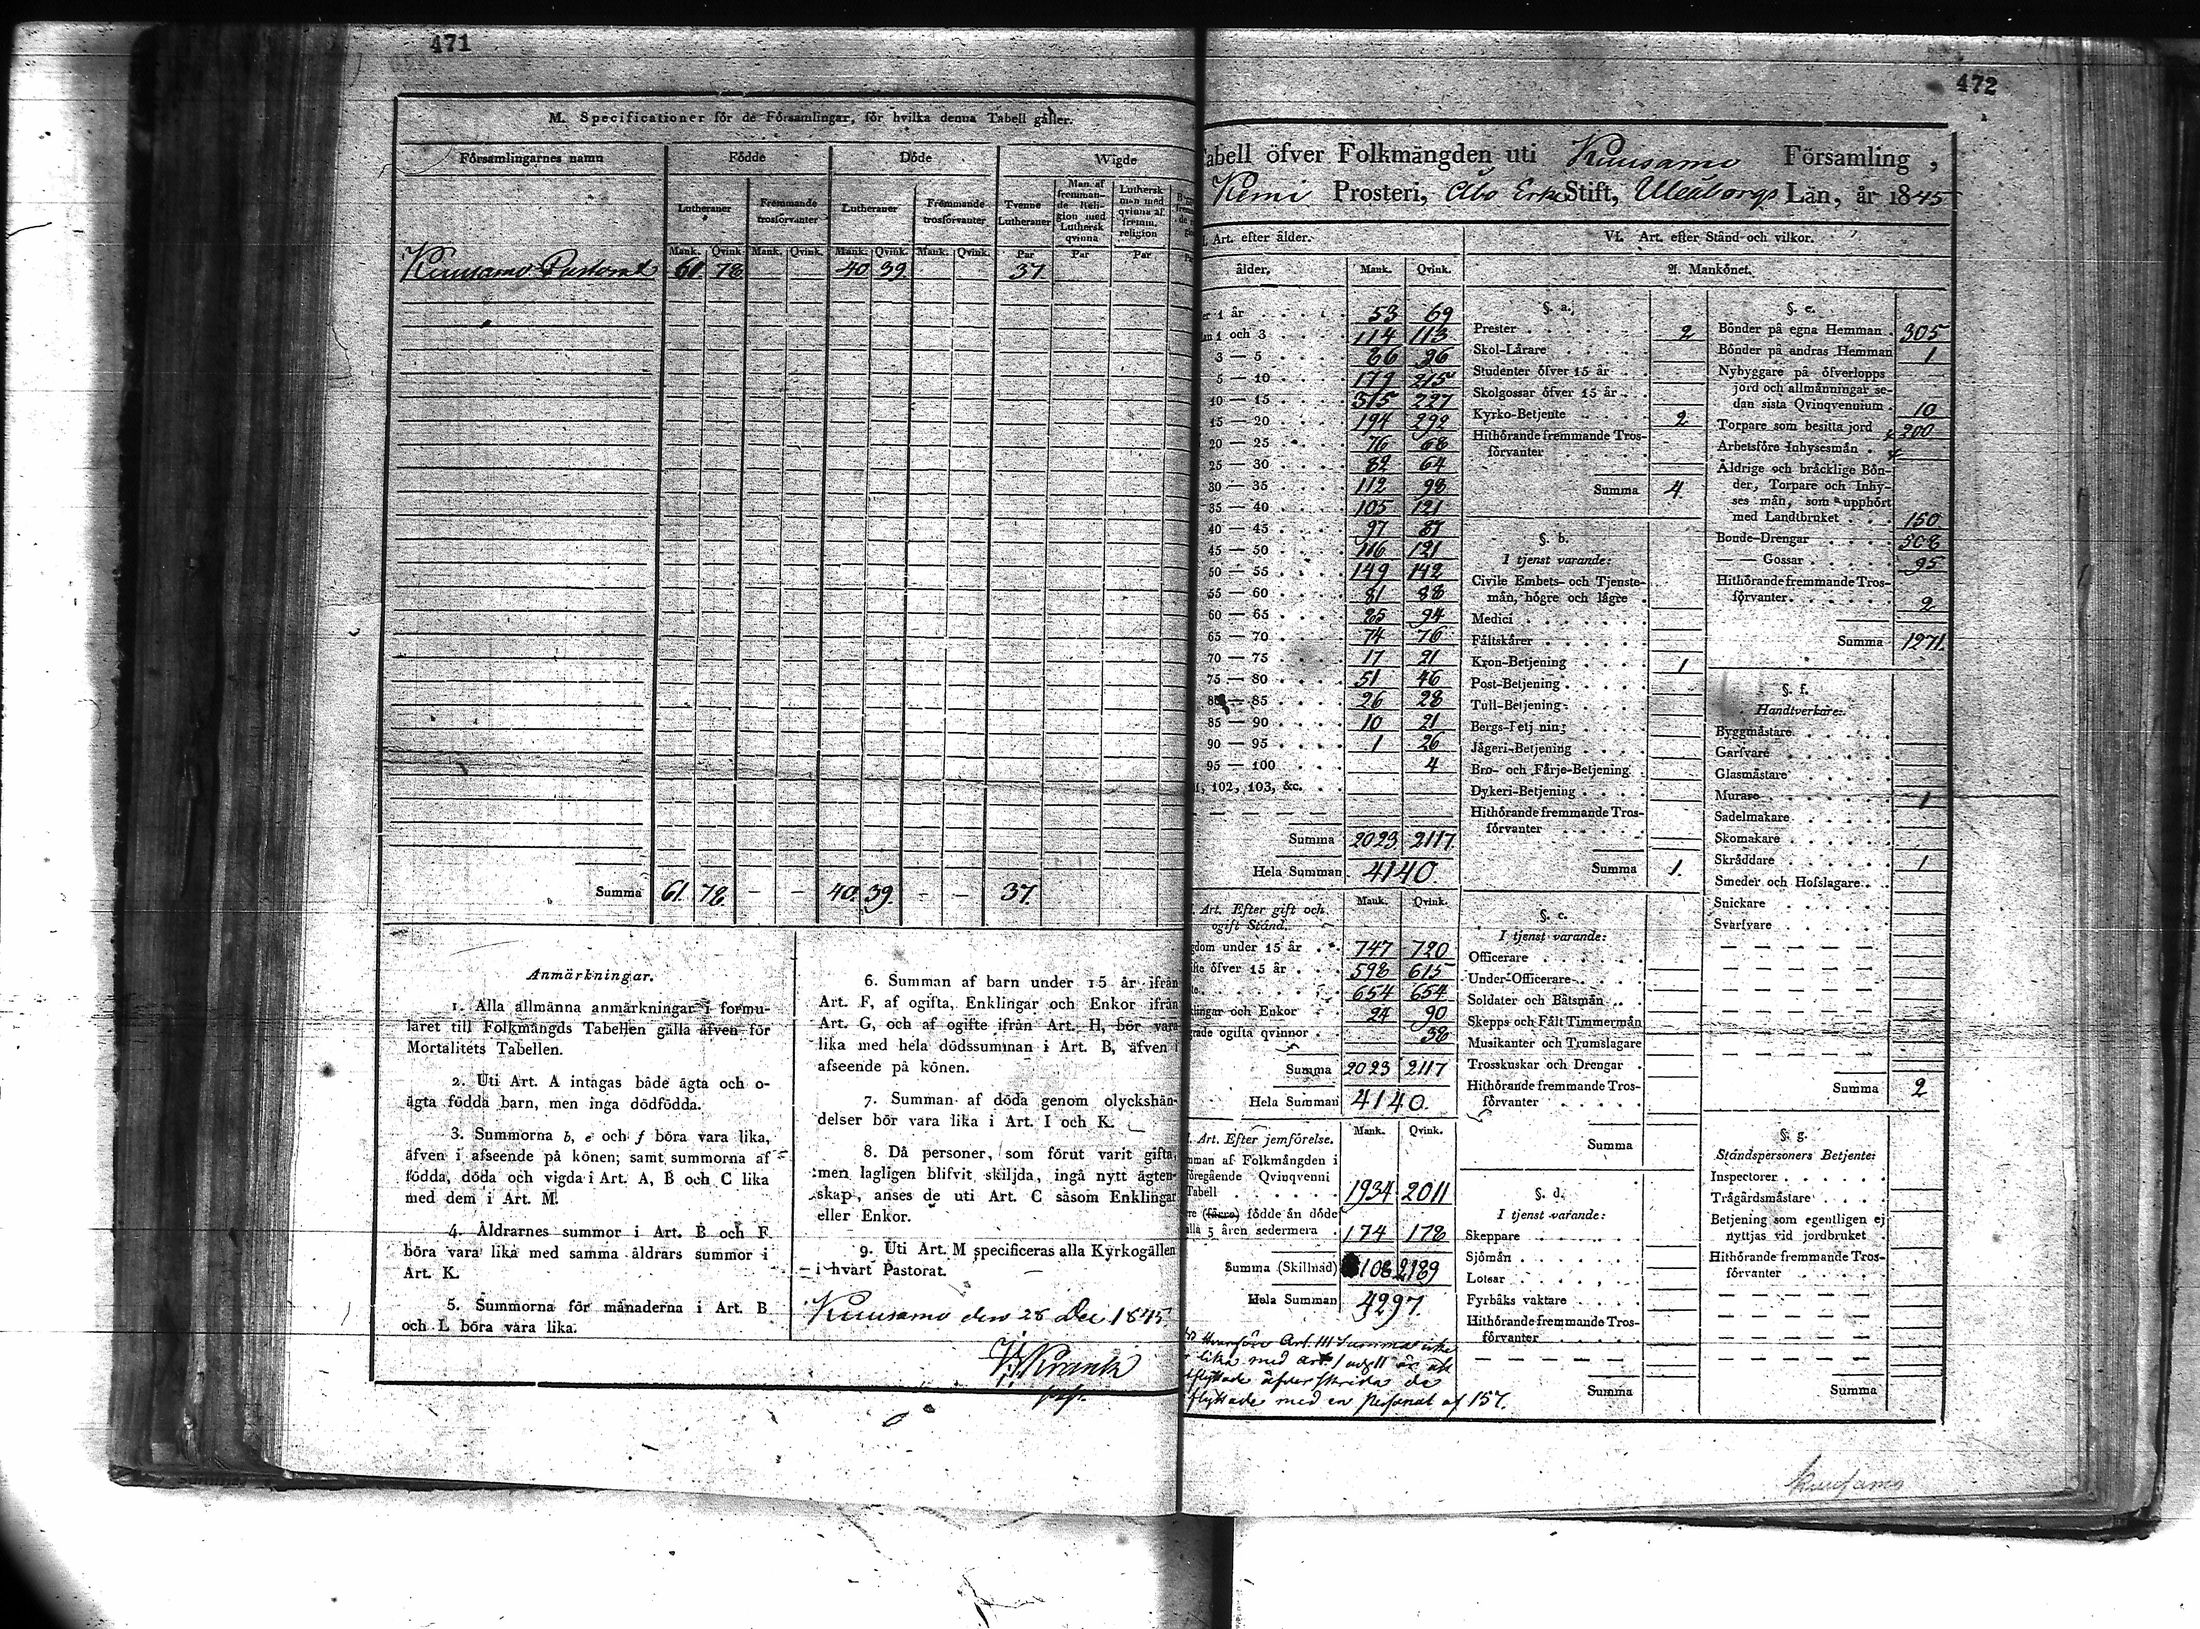 471
M. Specificationer för de Församlingar, för hvilka denna Tabell gäller.
Församlingarnes namn Födde Döde Wigde
Lutheraner Fremmande trosförvanter Lutheraner Fremmande trosförvanter Tvenne Lutheraner Man af fremmande Religion med Luthersk qvinna Luthersk man med qvinna af fremm. religion
Mank. Qvink. Mank. Qvink. Mank. Qvink. Mank. Qvink. Par Par Par
Kuusamo Pastorat 61 78 40 39 37
Summa 61. 78. - - 40. 39. - - 37.
Anmärkningar.
1. Alla allmänna anmärkningar i formu-
läret till Folkmängds Tabellen gälla äfven för
Mortalitets Tabellen.
2. Uti Art. A intagas både ägta och o-
ägta födda barn, men inga dödfödda.
3. Summorna b, e och f böra vara lika,
äfven i afseende på könen; samt summorna af
födda, döda och vigda i Art. A, B och C lika
med dem i Art. M.
4. Åldrarnes summor i Art. B och F
böra vara lika med samma åldrars summor i
Art. K.
5. Summorna för månaderna i Art. B
och L böra vara lika.
6. Summan af barn under 15 år ifrån
Art. F, af ogifta, Enklingar och Enkor ifrån
Art. G, och af ogifte ifrån Art. H, bör vara
lika med hela dödssumman i Art. B, äfven i
afseende på könen.
7. Summan af döda genom olyckshän-
delser bör vara lika i Art. I och K.
8. Då personer, som förut varit gifta,
men lagligen blifvit skiljda, ingå nytt ägten-
skap, anses de uti Art. C såsom Enklingar
eller Enkor.
9. Uti Art. M specificeras alla Kyrkogällen
i hvart Pastorat.
Kuusamo den 28 Dec 1845.
472
Tabell öfver Folkmängden uti Kuusamo Församling,
Kemi Prosteri, Åbo Erke Stift, Uleåborgs Län, år 1845
Art. efter ålder.
ålder. Mank. Qvink.
1 år 53 69
1 och 3 114 113
3 — 5 86 96
5 — 10 179 215
10 — 15 315 227
15 — 20 194 292
20 — 25 76 68
25 — 30 82 64
30 — 35 112 98
35 — 40 105 121
40 — 45 97 87
45 — 50 116 121
50 — 55 149 142
55 — 60 81 88
60 — 65 85 94
65 — 70 74 76
70 — 75 17 21
75 — 80 51 46
80 — 85 26 28
85 — 90 10 21
90 — 95 1 26
95 — 100 4
102, 103, &c.
Summa 2023 2117
Hela Summan 4140.
Art. Efter gift och ogift Stånd. Mank. Qvink.
under 15 år 747 720
öfver 15 år 598 615
654 654
och Enkor 24 90
ogifta qvinnor 38
Summa 2023 2117
Hela Summan 4140.
Art. Efter jemförelse. Mank. Qvink.
af Folkmängden i
föregående Qvinqvenni
Tabell 1934 2011
(färre) födde än döde
5 åren sedermera 174 178
Summa (Skillnad) 2108 2189
Hela Summan 4297.
Art. III Summa icke
lika med Art. I och II är att
flyttade med en personal af 157.
VI. Art. efter Stånd och vilkor.
A. Mankönet.
§. a.
Prester 2
Skol-Lärare
Studenter öfver 15 år
Skolgossar öfver 15 år
Kyrko-Betjente 2
Hithörande fremmande Tros-
förvanter
Summa 4.
§. b.
I tjenst varande:
Civile Embets- och Tjenste-
män, högre och lägre
Medici
Fältskärer
Kron-Betjening 1
Post-Betjening
Tull-Betjening
Bergs-Betjening
Jägeri-Betjening
Bro- och Färje-Betjening
Dykeri-Betjening
Hithörande fremmande Tros-
förvanter
Summa 1.
§. c.
I tjenst varande:
Officerare
Under-Officerare
Soldater och Båtsmän
Skepps och Fält Timmermän
Musikanter och Trumslagare
Trosskuskar och Drengar
Hithörande fremmande Tros-
förvanter
Summa
§. d.
I tjenst varande:
Skeppare
Sjömän
Lotsar
Fyrbåks vaktare
Hithörande fremmande Tros-
förvanter
Summa
§. e.
Bönder på egna Hemman 305
Bönder på andras Hemman 1
Nybyggare på öfverlopps
jord och allmänningar se-
dan sista Qvinqvennium 10
Torpare som besitta jord 200
Arbetsföre Inhysesmän
Äldrige och bräcklige Bön-
der, Torpare och Inhy-
ses män, som upphört
med Landtbruket 150
Bonde-Drengar 508
— — Gossar 95
Hithörande fremmande Tros-
förvanter 2
Summa 1271.
§. f.
Handtverkare:
Byggmästare
Garfvare
Glasmästare
Murare 1
Sadelmakare
Skomakare
Skräddare 1
Smeder och Hofslagare
Snickare
Svarfvare
Summa 2
§. g.
Ståndspersoners Betjente:
Inspectorer
Trägårdsmästare
Betjening som egentligen ej
nyttjas vid jordbruket
Hithörande fremmande Tros-
förvanter
Summa
Kuusamo